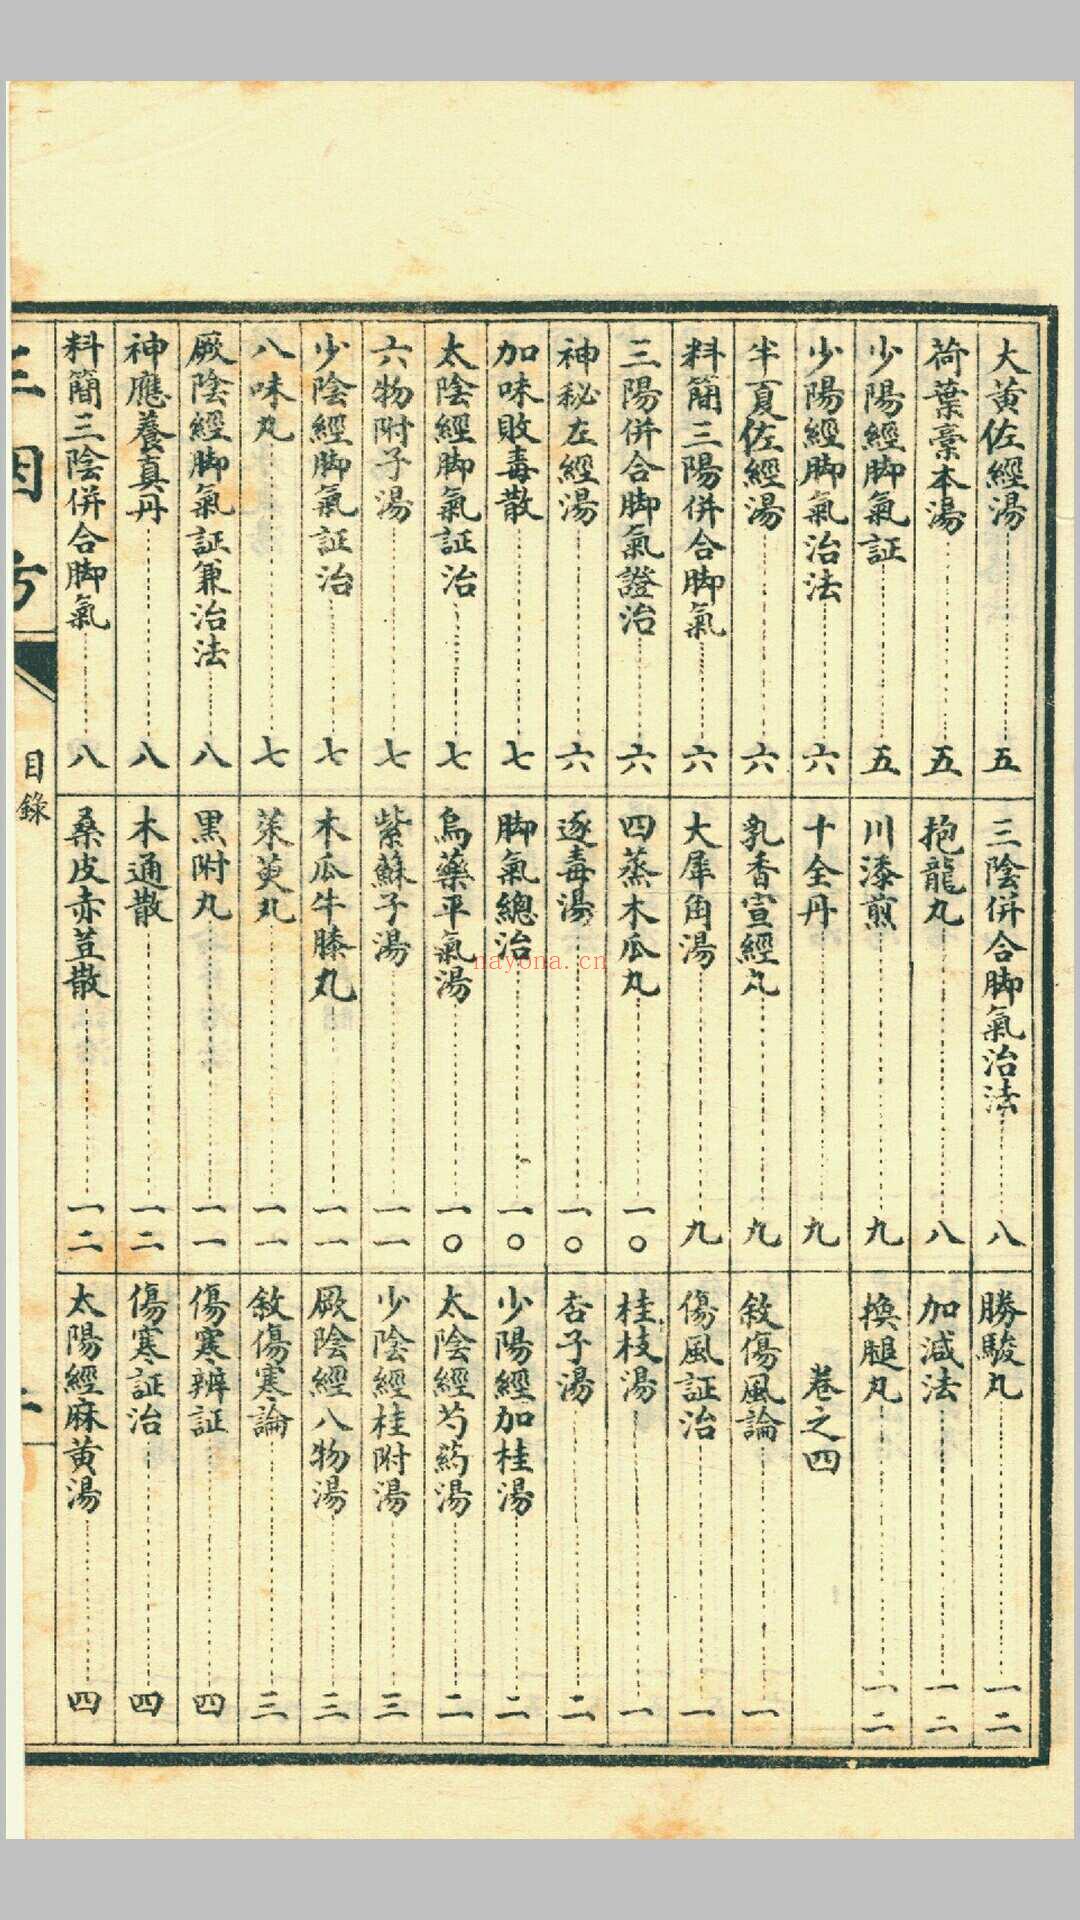 大黃佐經湯……五
荷葉藁本湯……五
少陽經脚氣証……五
少陽經脚氣治法……六
半夏佐經湯……六
料簡三陽併合脚氣……六
三陽併合脚氣證治……六
神秘左經湯……六
加味敗毒散……七
太陰經脚氣証治……七
六物附子湯……七
少陰經脚氣証治……七
八味丸……七
厥陰經脚氣証兼治法……八
神應養真丹……八
料簡三陰併合脚氣……八
三陰併合脚氣治法……八
抱龍丸……八
川漆煎……九
十全丹……九
乳香宣經丸……九
大犀角湯……九
四蒸木瓜丸……一〇
逐毒湯……一〇
脚氣總治……一〇
烏藥平氣湯……一〇
紫蘇子湯……一一
木瓜牛膝丸……一一
茱萸丸……一一
黑附丸……一一
木通散……一二
桑皮赤荳散……一二
勝駿丸……一二
加減法……一二
換腿丸……一二
卷之四
敘傷風論……一
傷風証治……一
桂枝湯……一
杏子湯……二
少陽經加桂湯……二
太陰經芍葯湯……二
少陰經桂附湯……三
厥陰經八物湯……三
敘傷寒論……三
傷寒辨証……四
傷寒証治……四
太陽經麻黃湯……四
三因方
目錄
nayona.cn